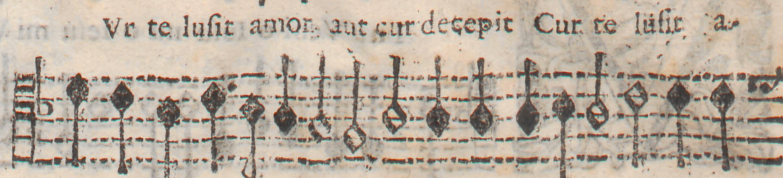 Vr te lusit amor aut cur decepit Cur te lusit a-